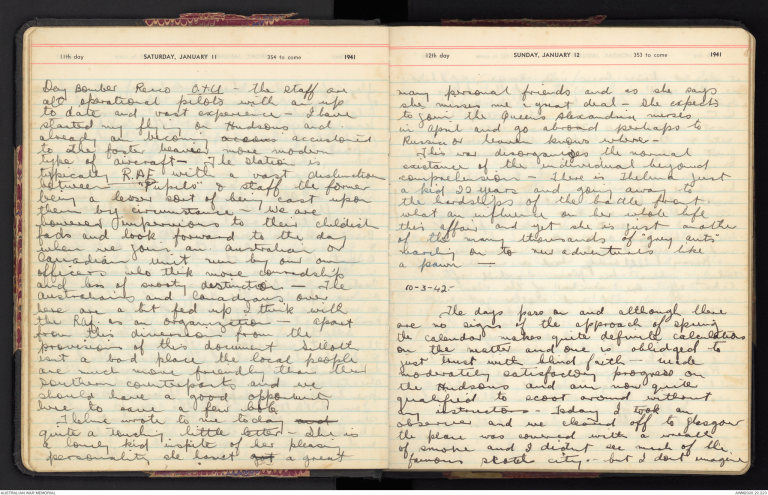 11th day SATURDAY, JANUARY 11 354 to come 1941
Day Bomber Recco OTU - the staff are
all operational pilots with an up
to date and vast experience - I have
started my flying on Hudsons and
already am becoming accustomed
to the faster heavier more modern
type of aircraft - The station is
typically RAF with a vast distinction
between - "Pupils" & staff the former
being a lesser sort of being cast upon
them by circumstance - We are
however impervious to their childish
fads and look forward to the day
when we join an Australian or
Canadian unit run by our own
officers who think more comradship
and less of snooty distinction - The
Australians and Canadians over
here are a bit fed up I think with
the RAF as an organization - apart
from this diversion from the
provisions of this document Silloth
isnt a bad place the local people
are much more friendly than their
southern counterparts and we
should have a good opportunity
here to save a few bob
Thelma wrote to me today
quite a touching little letter - She is
a lonely kid inspite of her pleasing
personality she hasnt got a great
12th day SUNDAY, JANUARY 12 353 to come 1941
many personal friends and as she says
she misses me a great deal - She expects
to join the Queens Alexandra nurses
in April and go abroad perhaps to
Russia or heaven knows where -
This war disorganizes the normal
existance of the individual beyond
comprehension - There is Thelma just
a kid 20 years and going away to
the hardships of the battle front
what an influence on her whole life
this affair and yet she is just another
of the many thousands of "grey ants"
marching on to new adventures like
a pawn -
10-3-42-
The days pass on and although there
are no signs of the approach of spring
the calendar makes quite definite calculations
on the matter and one is obliged to
just trust with blind faith - made
moderately satisfactory progress on
the Hudsons and am now quite
qualified to scoot around without
my instructors - Today I took an
observer and we cleared off to Glasgow
the place was covered with a wreath
of smoke and I didnt see much of the
famous scotch city - but I dont imagine
AUSTRALIAN WAR MEMORIAL
AWM2020.22.223